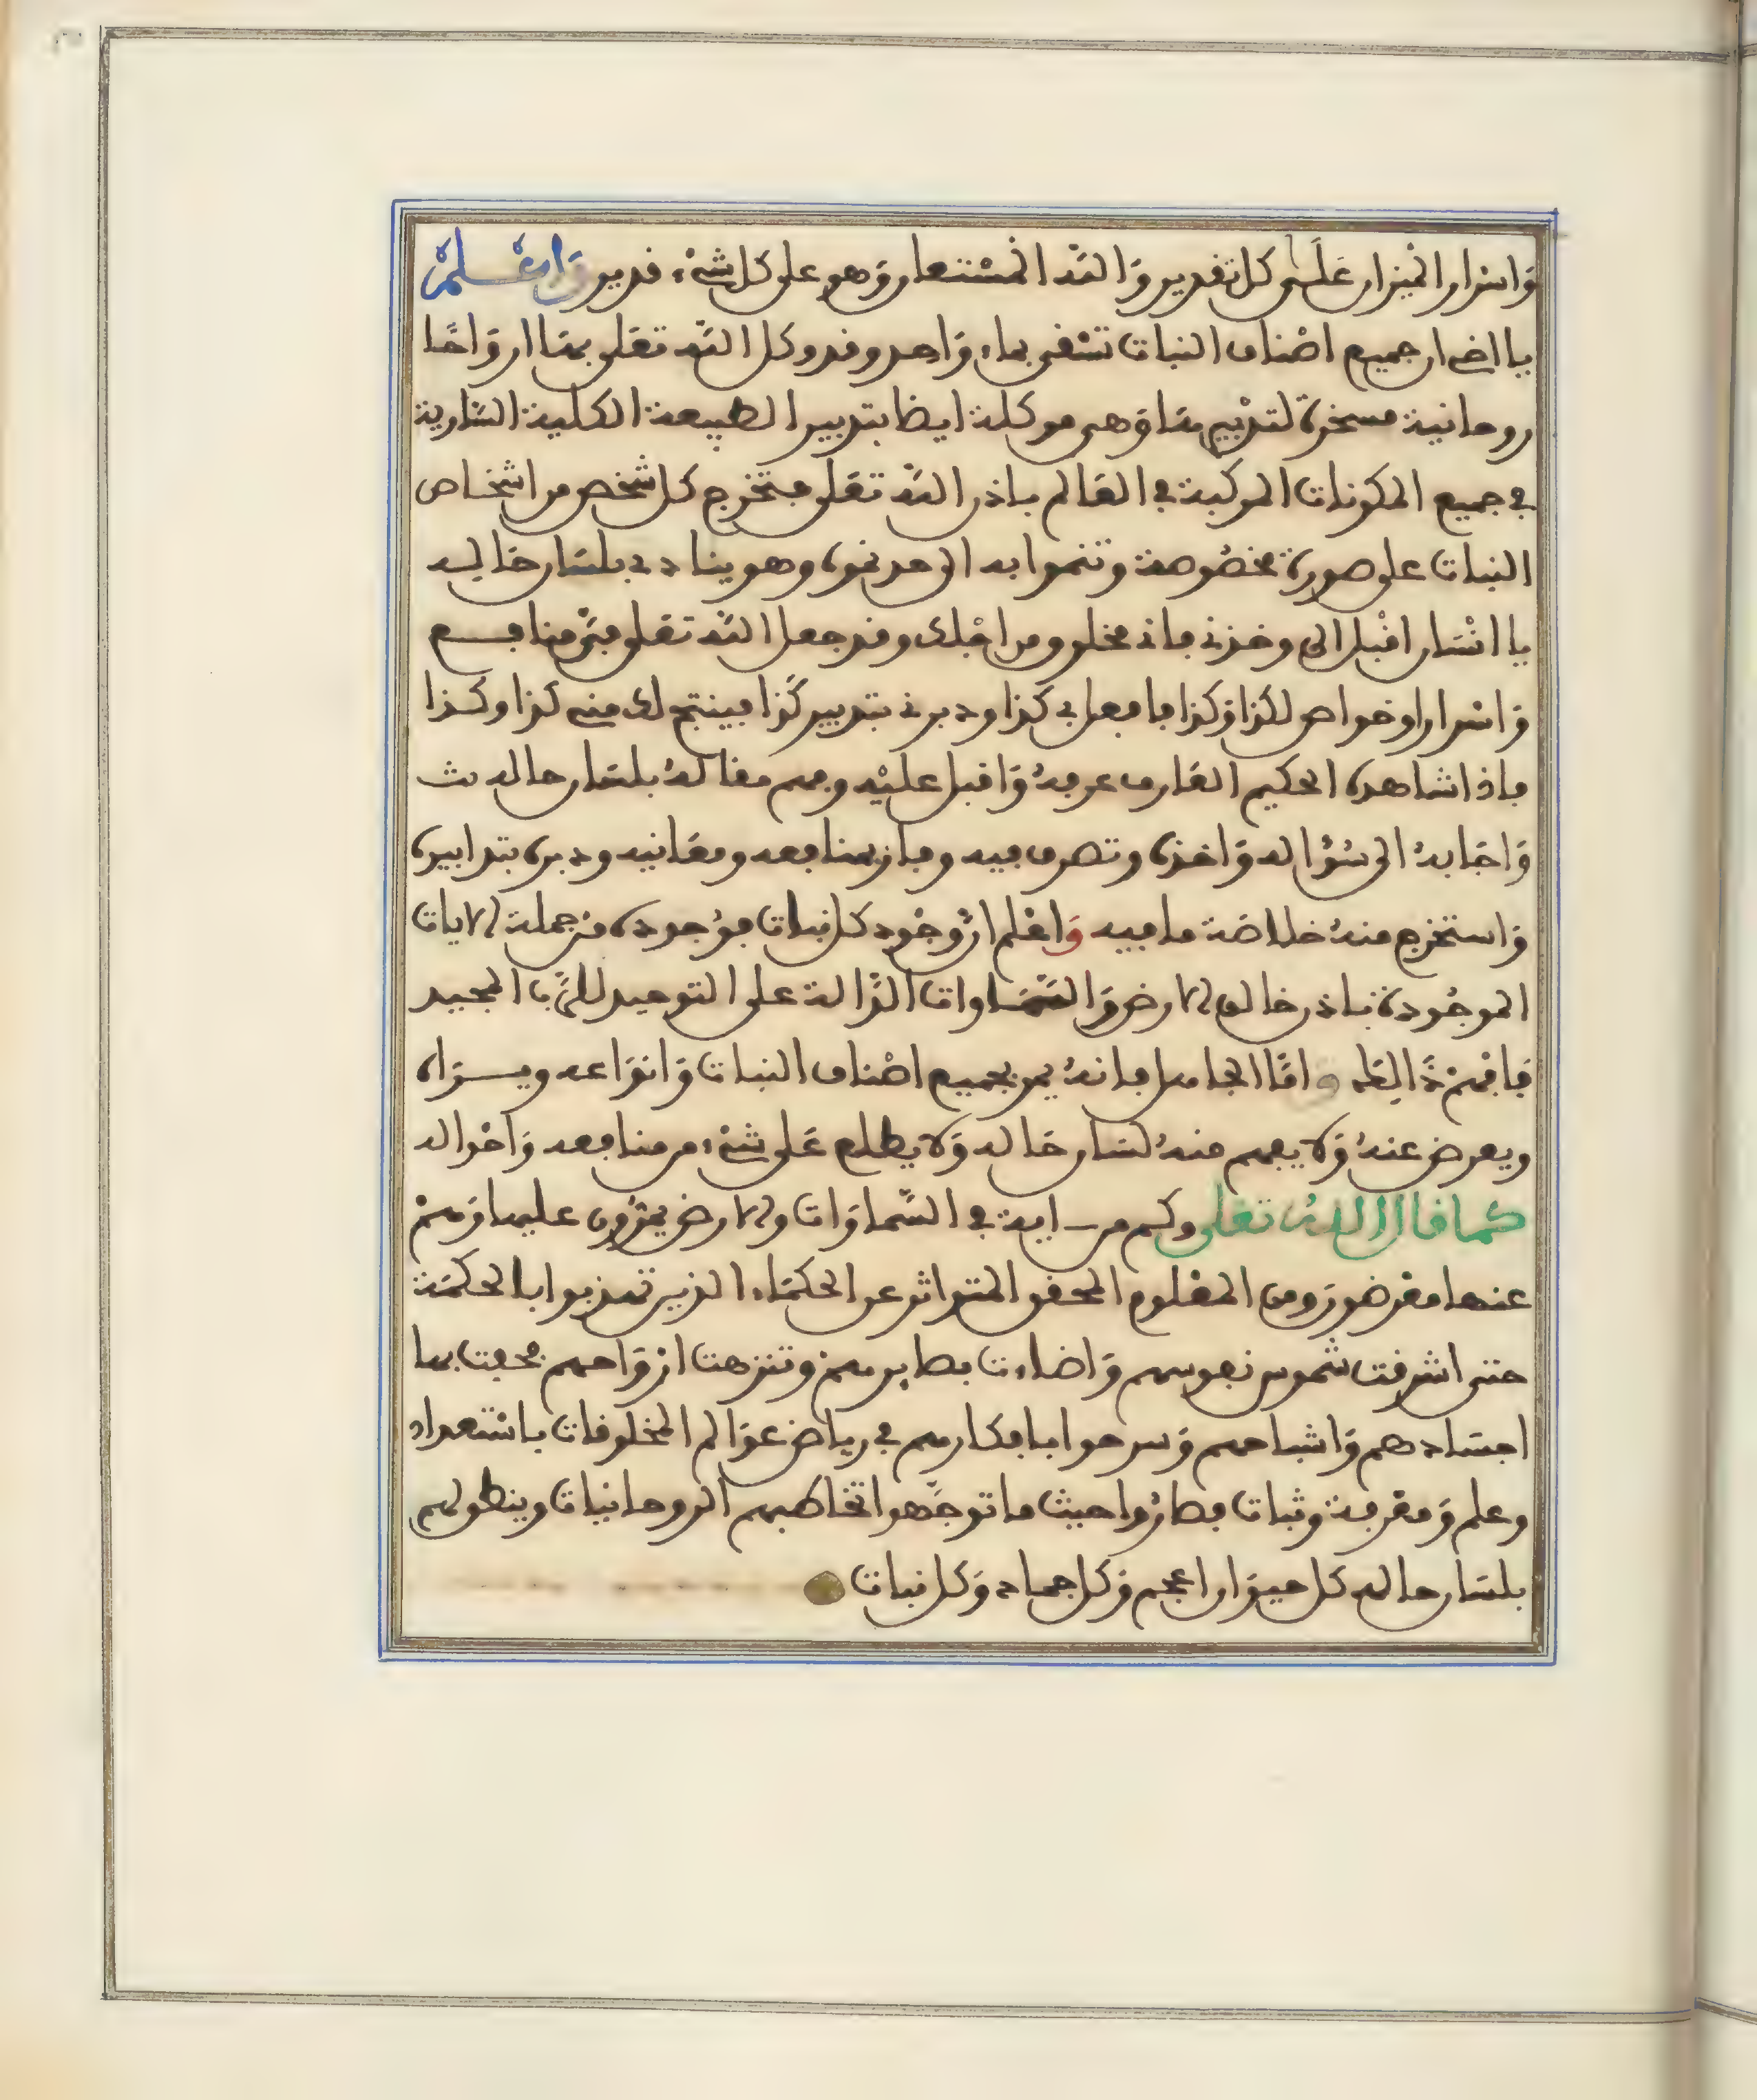 وَاسْرار الْمِيزان عَلَى كل تقدير وَاللّه الْمسْتعان وَهو على كل شيْء قدير وَاعْلمْ
يا اخي ان جميع اصْناف النبات تسْقى بماء وَاحد وقد وكل اللّه تعَلى بهَا ارْوَاحًا
روحانية مسخرة لتدْبيرهَا وَهي موكلة ايضا بتدبير الطبيعة الكلية السَّارية
في جميع المكونات المركبة في العَالم باذن اللّه تعَلى فتخْرج كل شخْص من اشخاص
النبات على صورة مخصُوصة وتنموا به الى حد نموه وهو يناد ي بلسَان حَاله
يا انْسَان اقْبل الي وخذني فاني مخلوق من اجْلك وقد جعل اللّه تعَلى فيّ منافع
وَاسْرارا وخواص لكذا وَكذا فافعل بي كذا ودبرني بتدبير كَذا فينتج لك مني كذا وكذا
فاذا شاهده الحكيم العَارف عرفهُ وَاقبل عليْه وفهم مقالهُ بلسَان حاله ث
وَاجَابهُ الى سُؤاله وَاخذه وتصرف فيه وفاز بمنافعه ومعَانيه ودبره بتدابيره
وَاستخرج منهُ خلاصَة ما فيه وَاعْلم انْ وجُود كل نبات مؤجوده منْ جملة الايات
الموجُودة باذن خالق الارض وَالسّمَاوات الدَّالة على التوحيد للرَّب المجيد
فَافْهمْ ذَالِكَ وامَّا الجاهل فانهُ يمر بجميع اصْناف النبات وَانوَاعه ويــرَاه
ويعرض عنهُ وَلا يفهم منهُ لسَان حَاله وَلا يطلع عَلى شيْء من منافعه وَاحْواله
كما قال اللهُ تعَلى وكم من ايه في السّماوَات والارض يمرُّون عليها وَهمْ
عنها معْرضون وَمن المعْلوم المحقق المتواثر عن الحكمَاء الذين تهذبوا بالحكمَة
حتى اشرقت شموس نفوسهم وَاضاءت بصايرهمْ وتنزهت ارْوَاحهم فخفت بها
اجسَادهم وَاشباحهم وَسرحوا بافكارهم في رياض عوَالم المخلوقات باسْتعداد
وعلم وَمعْرفة وثبات فصارُوا حيث ما توجَّهوا تخاطبهم الروحانيات وينطق لهم
بلسَان حاله كل حيوَان اعجم وَكل جماد وَكل نبات